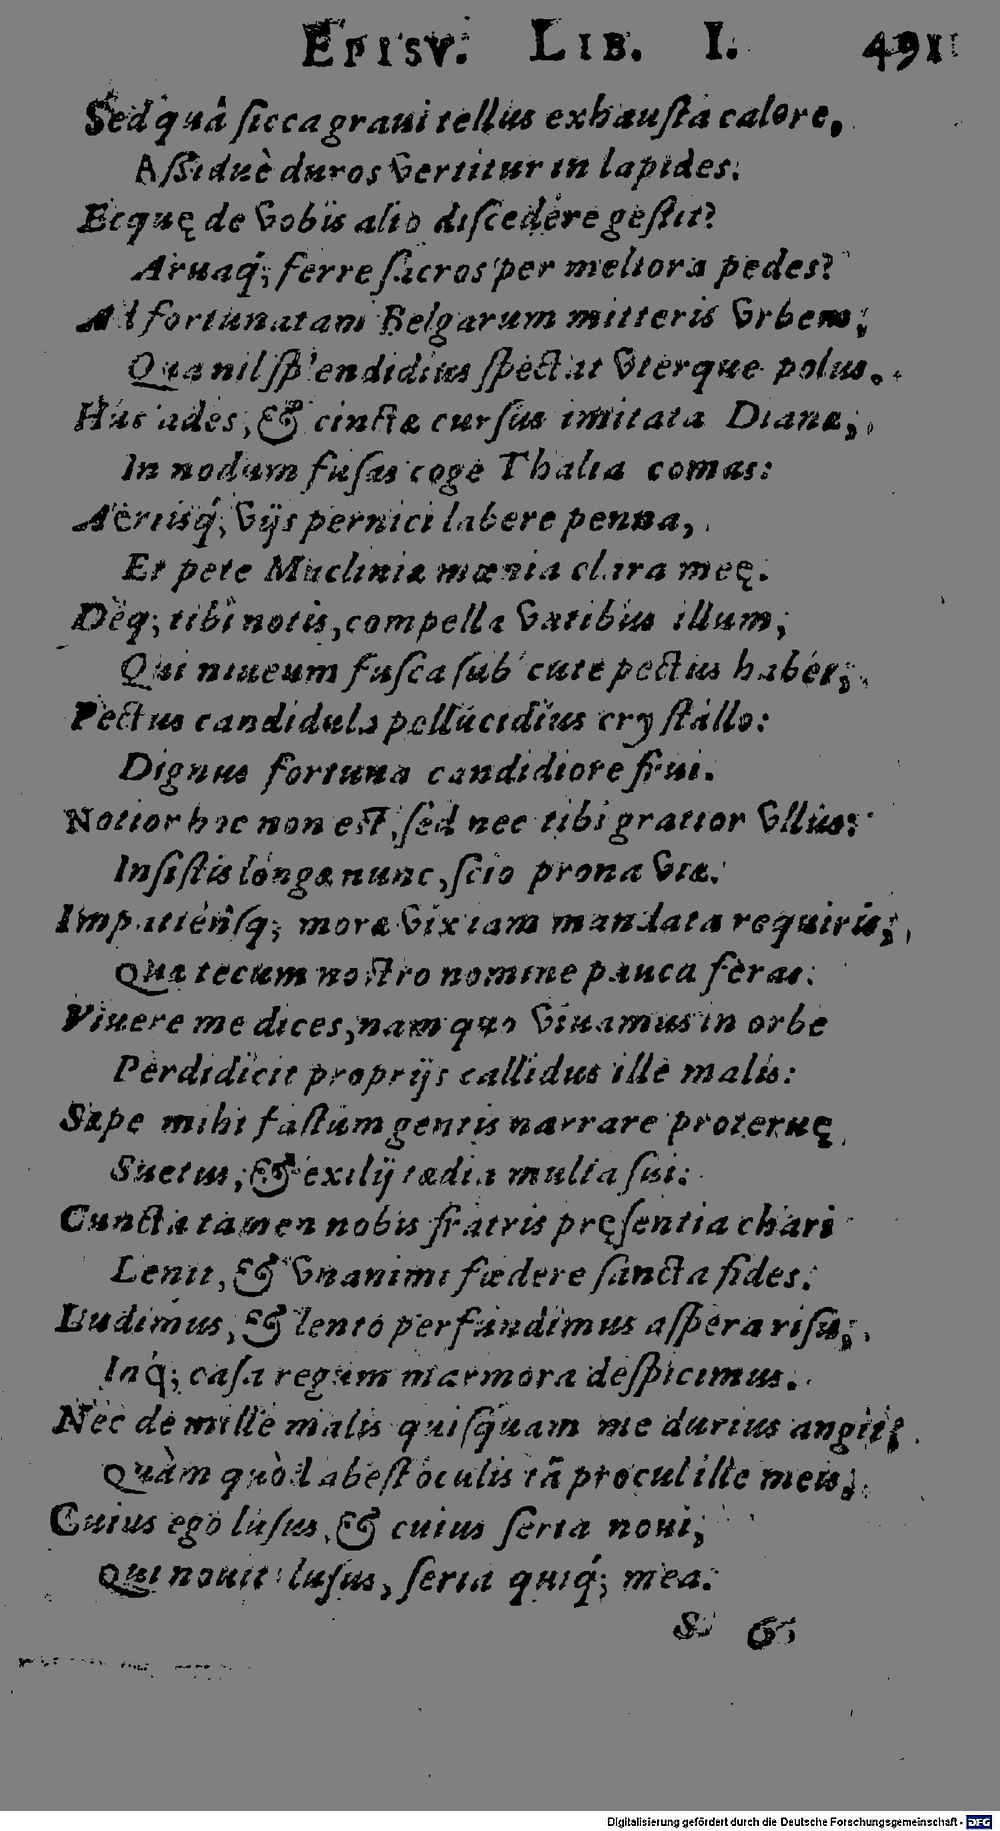 EPISV. LIB. I. 491
Sed quâ ſicca graui tellus exhauſta calore,
Aſſiduè duros vertitur in lapides:
Ecquę de vobis alio diſcedere geſtit?
Aruaq́; ferre ſacros per meliora pedes?
Ad fortunatam Belgarum mitteris vrbem;
Qua nil ſplendidius ſpectat vterque polus.
Huc ades, & cinctæ curſus imitata Dianæ;
In nodum fuſas coge Thalia comas:
Aëriisq́; vijs pernici labere penna,
Et pete Mecliniæ mœnia clara meę.
Déq; tibi notis, compella vatibus illum;
Qui niueum fuſca ſub cute pectus habet;
Pectus candidula pellucidius cryſtallo:
Dignus fortuna candidiore frui.
Notior hac non eſt, ſed nec tibi gratior vllius:
Inſiſtis longæ nunc, ſcio prona viæ.
Impatiénſq; moræ vix iam mandata requiris;
Qua tecum noſtro nomine pauca feras:
Viuere me dices, nam quo viuamus in orbe
Perdidicit proprijs callidus ille malis:
Sæpe mihi faſtum gentis narrare proteruę
Suetus, & exilij tædia multa ſui:
Cuncta tamen nobis fratris pręſentia chari
Lenit, & vnanimi fœdere ſancta fides:
Ludimus, & lento perfundimus aſpera riſu;
Inq́; caſa regum marmora deſpicimus.
Nec de mille malis quiſquam me durius angit;
Quàm quòd abeſt oculis tā procul ille meis;
Cuius ego luſus, & cuius ſeria noui;
Qui nouit luſus, ſeria quiq́; mea.
Digitalisierung gefördert durch die Deutsche Forschungsgemeinschaft - DFG